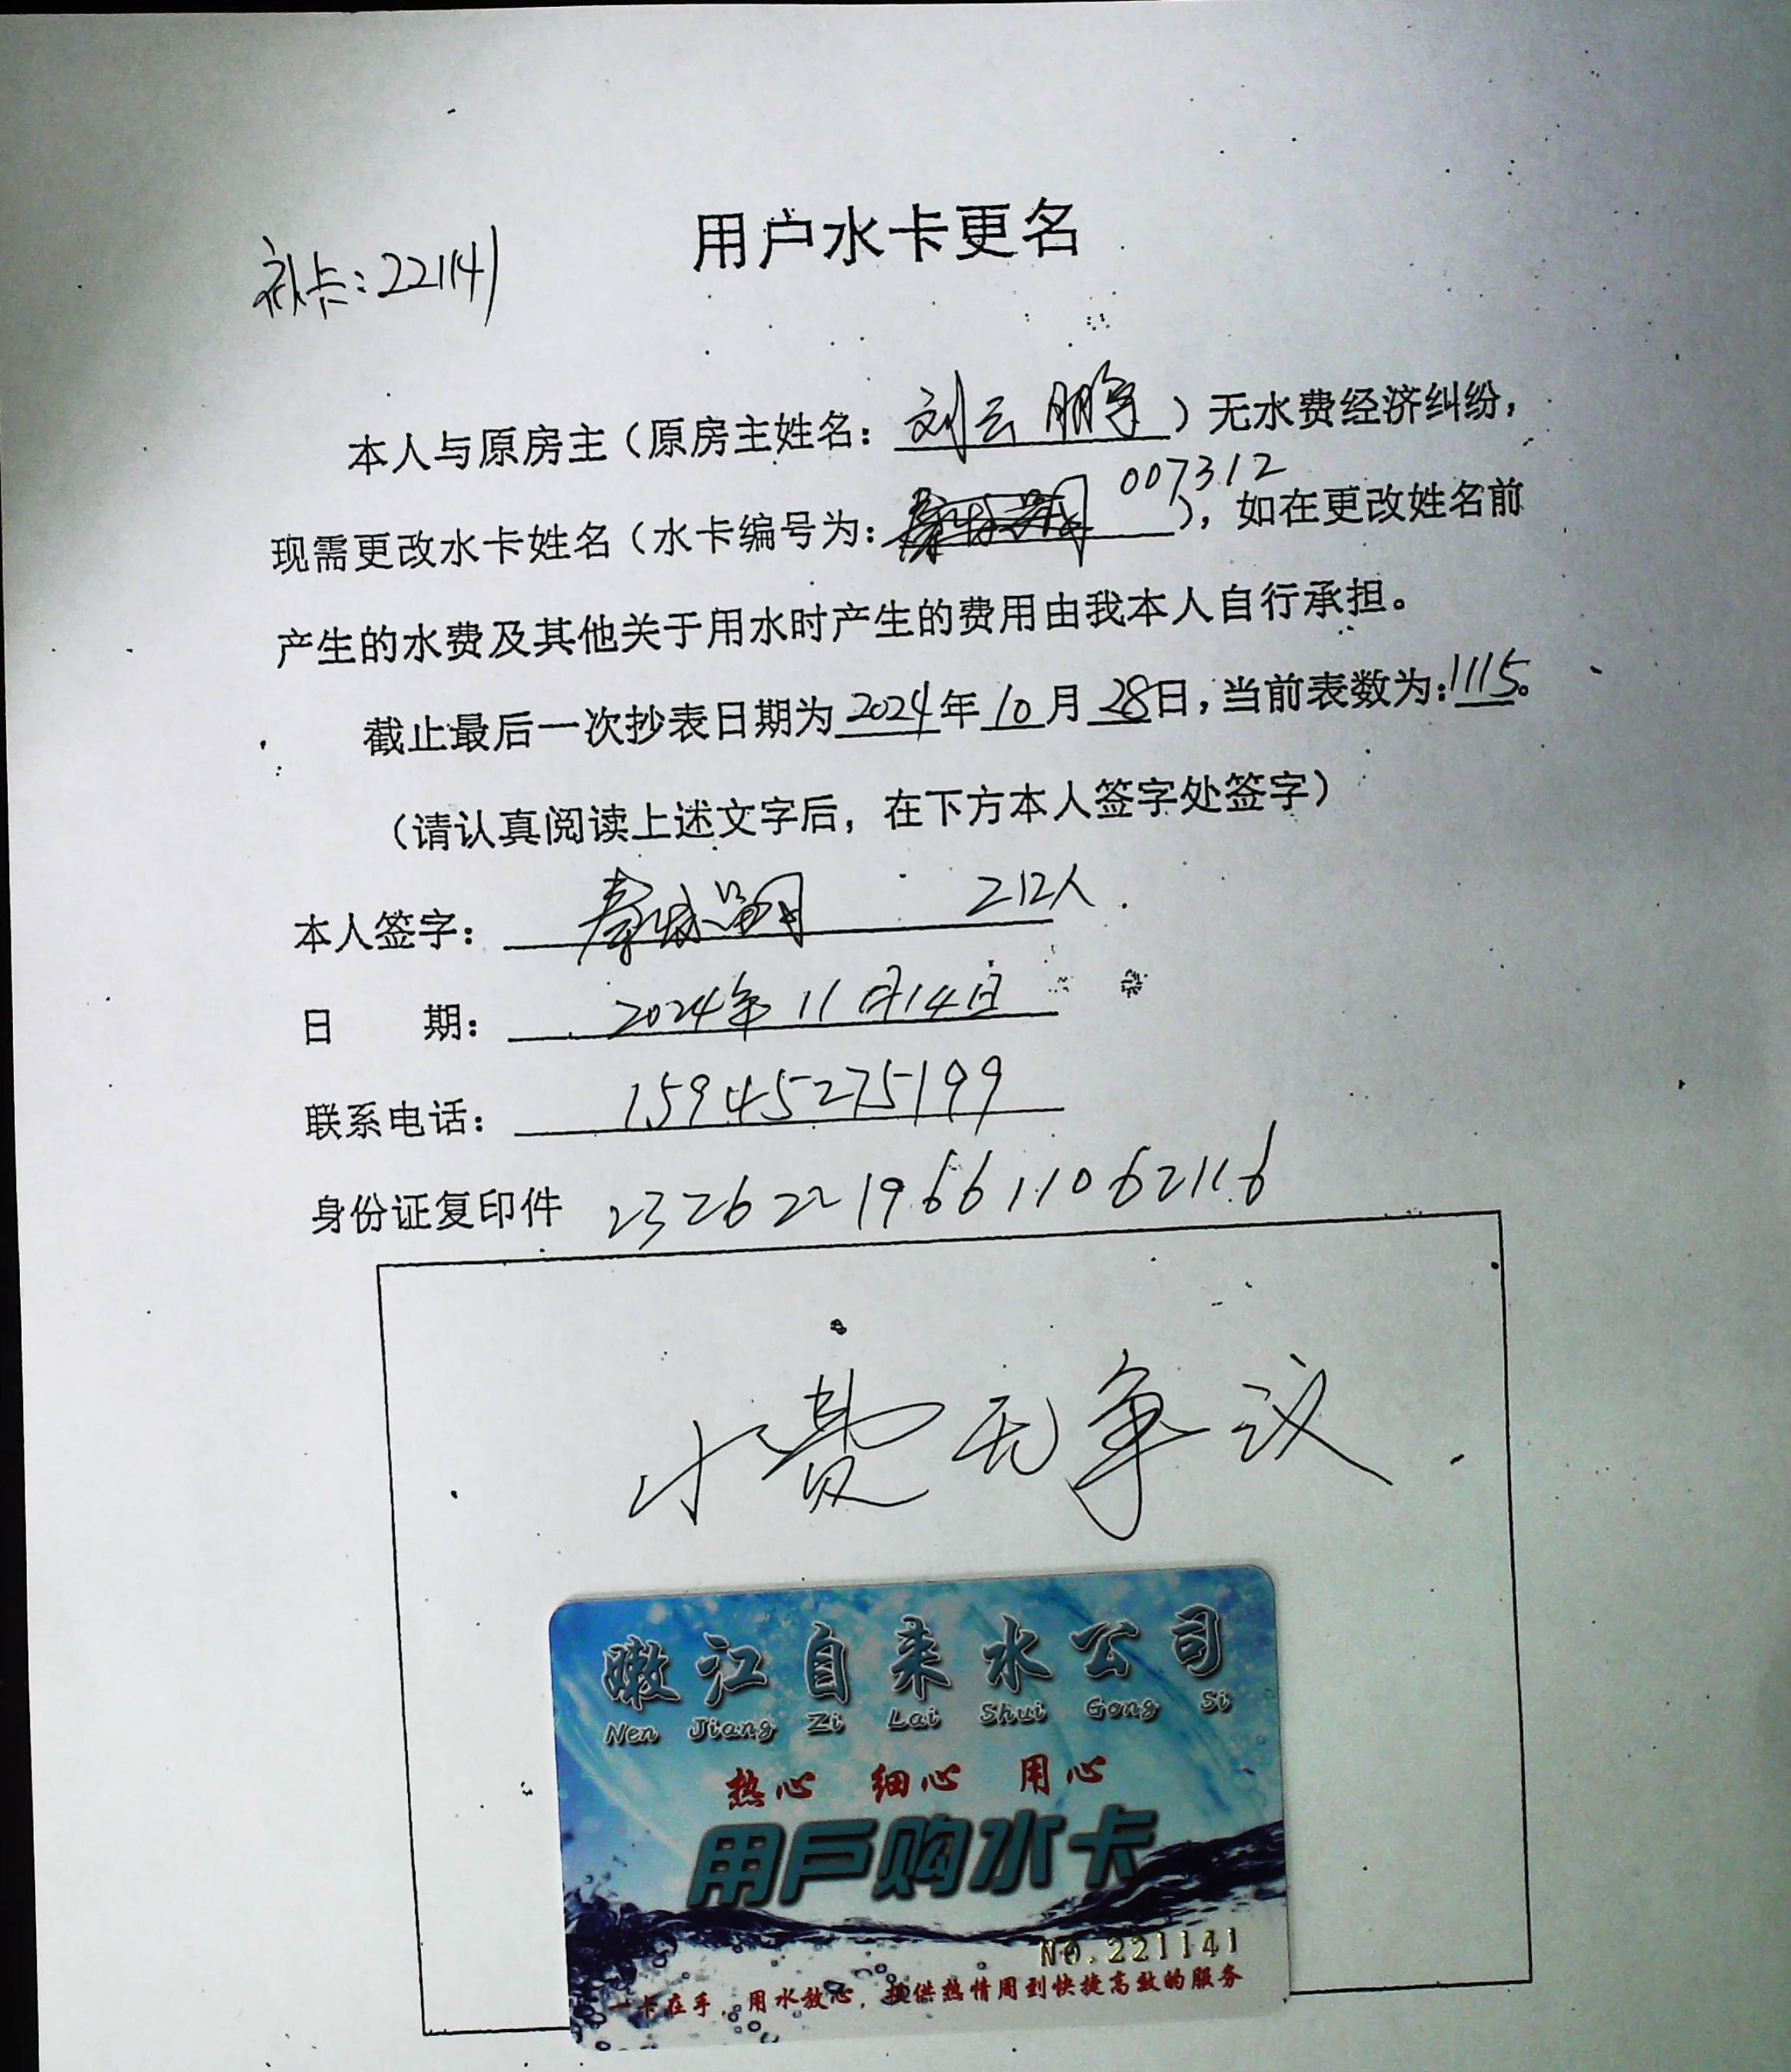 用户水卡更名
补卡:221141
本人与原房主（原房主姓名：刘云鹏）无水费经济纠纷，
007312
现需更改水卡姓名（水卡编号为：），如在更改姓名前
产生的水费及其他关于用水时产生的费用由我本人自行承担。
截止最后一次抄表日期为2024年10月28日，当前表数为：1115。
（请认真阅读上述文字后，在下方本人签字处签字）
本人签字： 212人
日 期： 2024年11月14日
联系电话： 15945275199
身份证复印件 232622196611062116
水费无争议
嫩江自来水公司
Nen Jiang Zi Lai Shui Gong Si
热心 细心 用心
用户购水卡
NO.221141
一卡在手，用水放心，提供热情周到快捷高效的服务